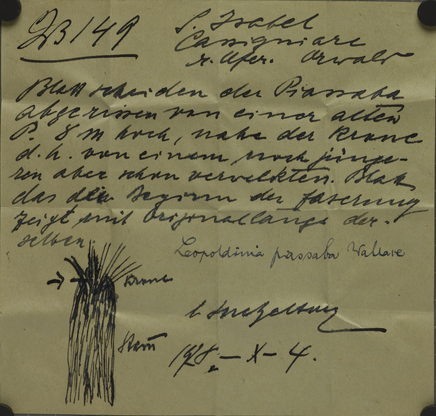 ZB149
S. Isabel
Cassiquiare
r. Ufer. Orwald
Blattscheiden der Piassaba
abgerissen von einer alten
P. 8 m hoch, nahe der Krone
d.h. von einem, noch jünge-
ren aber schon verwelkten. Blatt
das den Beginn der Faserung
zeigt mit Originallänge der-
selben
Leopoldinia piassaba Wallace
Krone
Stam
1928.-X-4.